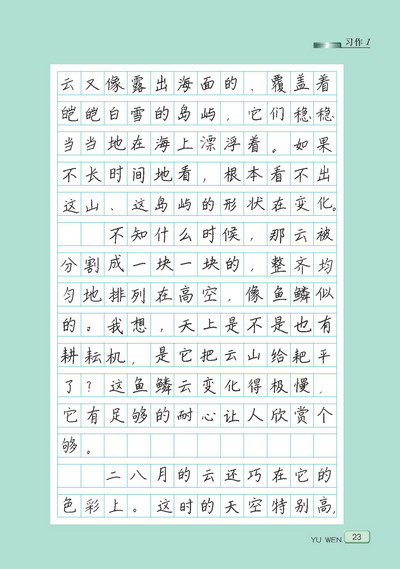 习作1
云又像露出海面的、覆盖着
皑皑白雪的岛屿，它们稳稳
当当地在海上漂浮着。如果
不长时间地看，根本看不出
这山、这岛屿的形状在变化。
不知什么时候，那云被
分割成一块一块的，整齐均
匀地排列在高空，像鱼鳞似
的。我想，天上是不是也有
耕耘机，是它把云山给耙平
了？这鱼鳞云变化得极慢，
它有足够的耐心让人欣赏个
够。
二八月的云还巧在它的
色彩上。这时的天空特别高，
YU WEN 23